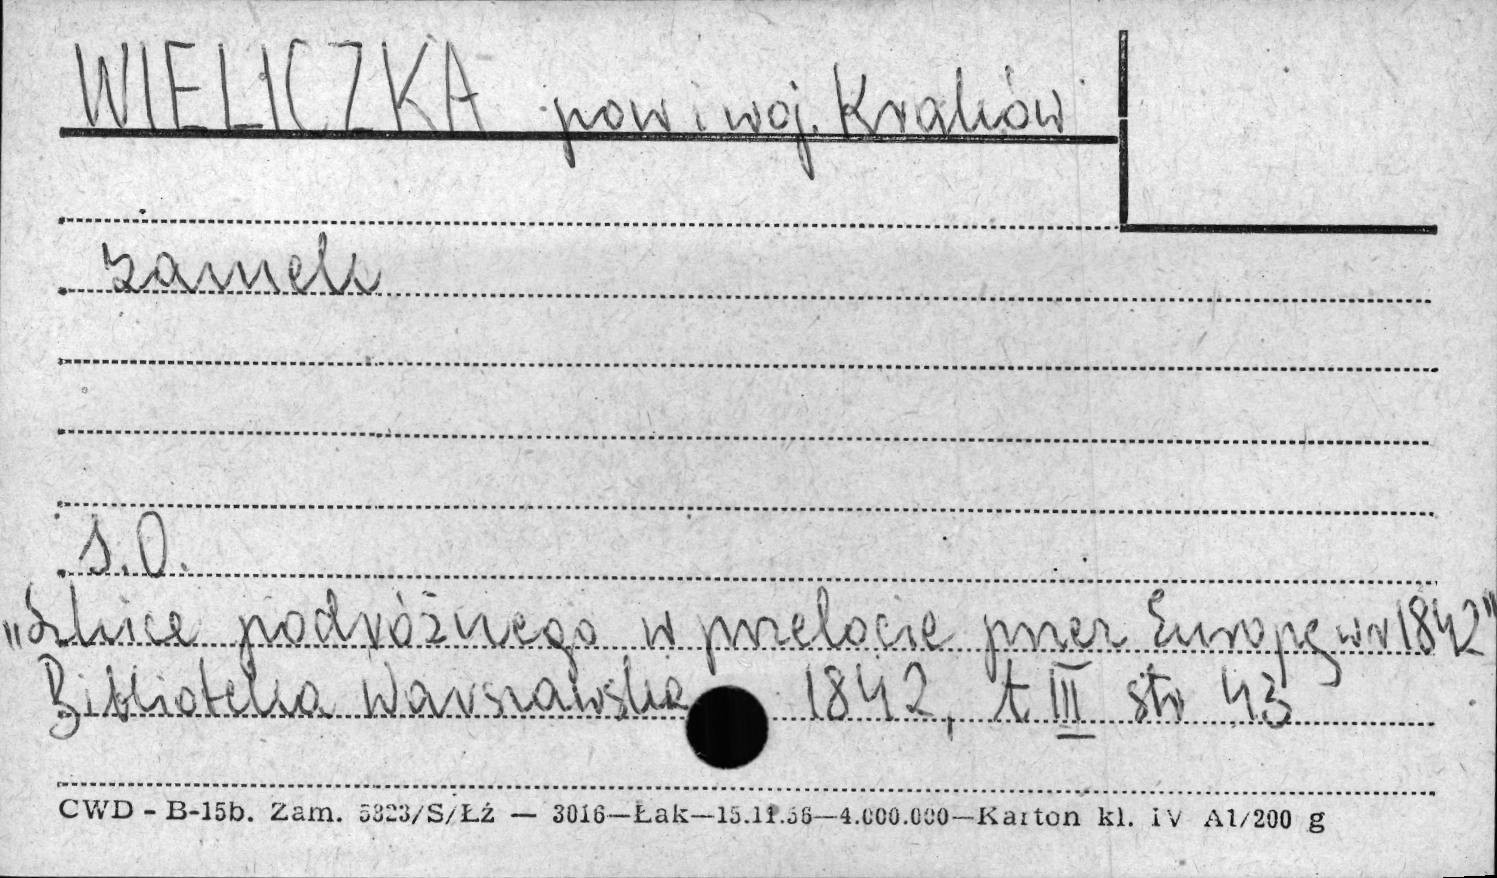 WIELICZKA pow i woj. Kraków
zamek
S.O.
„Szkice podróżnego w przelocie przez Europę w r 1842"
Biblioteka Warszawska 1842, t III str 43
CWD - B-15b. Zam. 5323/S/Łź — 3016—Łak—15.11.56—4.000.000—Karton kl. IV A1/200 g